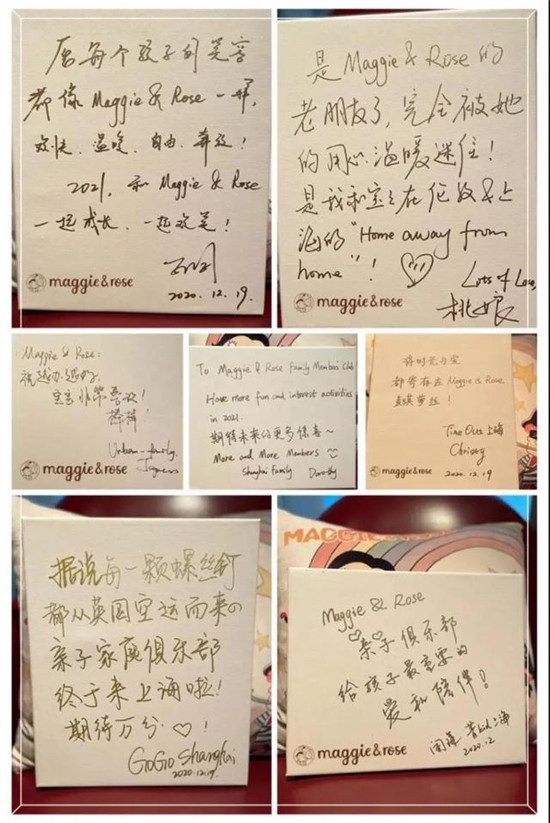 每个孩子的笑容
都像 Maggie & Rose 一样,
欢快、温暖、自由、奔放!
2021, 和 Maggie & Rose
一起成长、一起欢笑!
2020.12.19.
maggie&rose
是 Maggie & Rose 的
老朋友了, 完全被她
的用心、温暖迷住!
是我和宝宝在伦敦&上
海的 "Home away from
home"!
Lots of Love,
桃娘
maggie&rose
Maggie & Rose:
祝越办越好,
宝宝非常喜欢!
棒棒!
Urban-family.
maggie&rose
To Maggie & Rose Family Members Club
Have more fun and interest activities
in 2021.
期待未来的更多惊喜~
More and More Members
Shanghai Family Dorothy
将时光与爱
都寄存在 Maggie & Rose
Time Out 上海
2020.12.19
maggie&rose
据说每一颗螺丝钉
都从英国空运而来の
亲子家庭俱乐部
终于来上海啦!
期待万分 !
GoGo Shanghai
2020.12.19.
MAGGIE
Maggie & Rose
亲子俱乐部
给孩子最重要的
爱和陪伴!
2020.12
maggie&rose